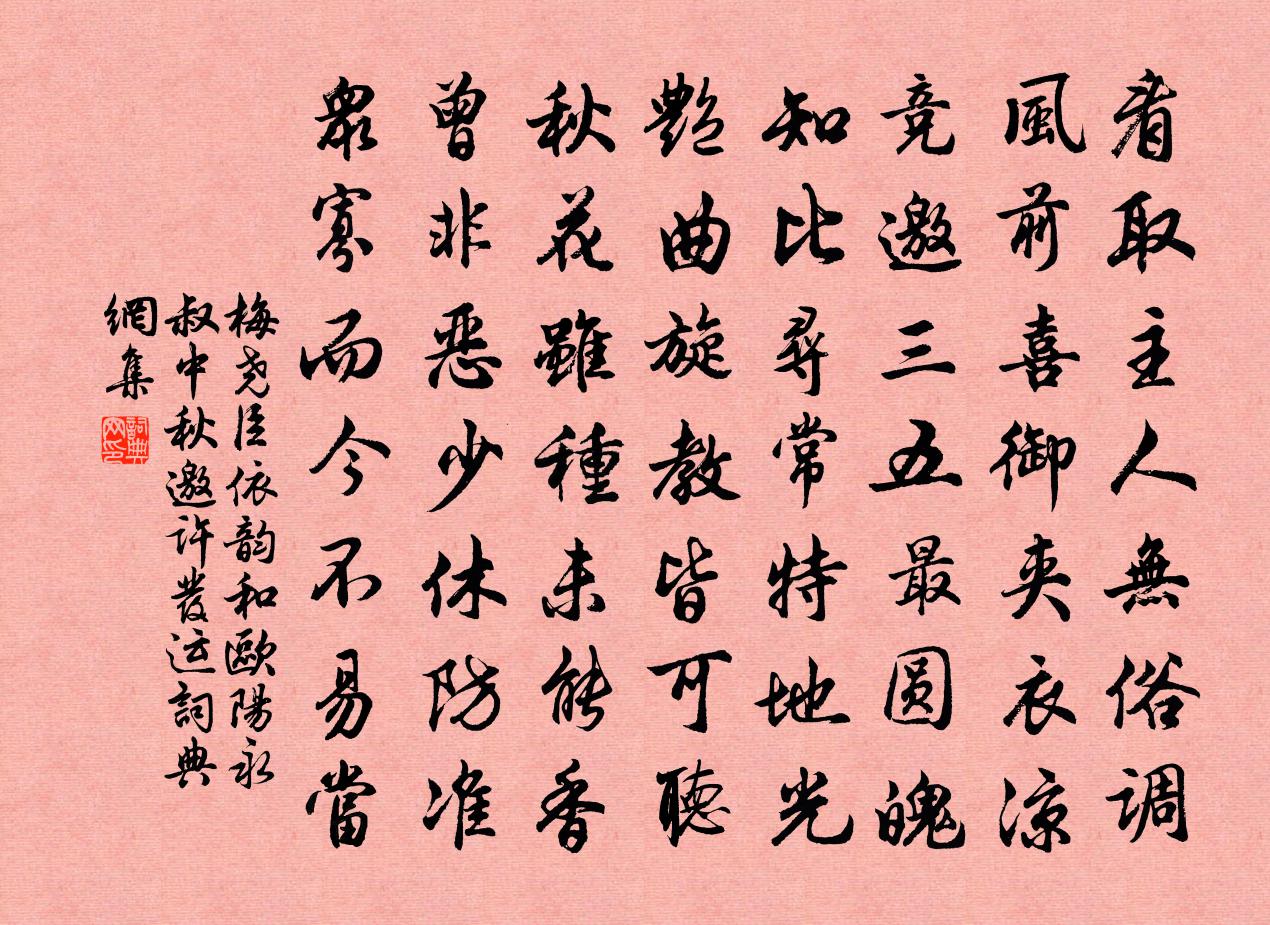 看取主人無俗调
風前喜御夹衣凉
竞邀三五最圆魄
知比尋常特地光
艷曲旋教皆可聽
秋花雖種未能香
曾非惡少休防准
眾寡而今不易當
梅尧臣依韵和歐陽永
叔中秋邀許發运詞典
網集
詞典
网印